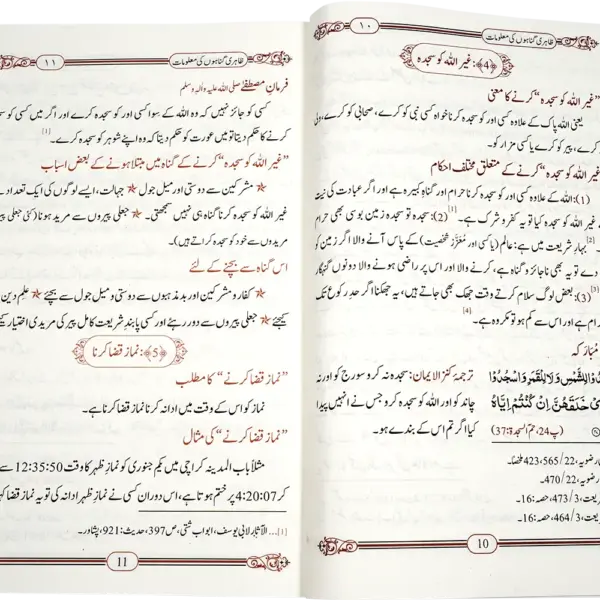 ۱۰
ظاہری گناہوں کی معلومات
﴿4﴾: غیر اللہ کو سجدہ
”غیر اللہ کو سجدہ“ کرنے کا معنی
یعنی اللہ پاک کے علاوہ کسی اور کو سجدہ کرنا خواہ کسی نبی کو کرے، صحابی کو کرے، ولی
کرے، پیر کو کرے یا کسی مزار کو۔
غیر اللہ کو سجدہ“ کرنے کے متعلق مختلف احکام
(1): اللہ کے علاوہ کسی اور کو سجدہ کرنا حرام اور گناہِ کبیرہ ہے اور اگر عبادت کی نیت
غیر اللہ کو سجدہ کیا تو یہ کفر و شرک ہے۔ [1] (2): سجدہ تو سجدہ زمین بوسی بھی حرام
[2] بہارِ شریعت میں ہے: عالم (یا کسی اور مُعَزَّز شخصیت) کے پاس آنے والا اگر زمین کو
دے تو یہ بھی ناجائز و گناہ ہے، کرنے والا اور اس پر راضی ہونے والا دونوں گنہگار
[3] (3): بعض لوگ سلام کرتے وقت جھک بھی جاتے ہیں، یہ جھکنا اگر حدِ رکوع تک
حرام ہے اور اس سے کم ہو تو مکروہ ہے۔ [4]
مُبارَکہ
لِلشَّمْسِ وَلَا لِلْقَمَرِ وَاسْجُدُوْا ترجمۂ کنز الایمان: سجدہ نہ کرو سورج کو اور نہ
خَلَقَهُنَّ اِنْ كُنْتُمْ اِيَّاهُ چاند کو اور اللہ کو سجدہ کرو جس نے انہیں پیدا
(پ24، حمٓ السجدۃ:37) کیا اگر تم اس کے بندے ہو۔
رضویہ، 22/565، 423 ملخصاً۔
رضویہ، 22/470۔
شریعت، 3/473، حصہ:16۔
شریعت، 3/464، حصہ:16۔
10
ظاہری گناہوں کی معلومات
۱۱
فرمانِ مصطفےٰ صلی اللہ علیہ واٰلہٖ وسلم
کسی کو جائز نہیں کہ وہ اللہ کے سوا کسی اور کو سجدہ کرے اور اگر میں کسی کو سجدہ
کرنے کا حکم دیتا تو میں عورت کو حکم دیتا کہ وہ اپنے شوہر کو سجدہ کرے۔ [1]
”غیر اللہ کو سجدہ“ کرنے کے گناہ میں مبتلا ہونے کے بعض اسباب
★ مشرکین سے دوستی اور میل جول ★ جہالت، ایسے لوگوں کی ایک تعداد ہے
غیر اللہ کو سجدہ کرنا گناہ ہی نہیں سمجھتی۔ ★ جعلی پیروں سے مرید ہونا (کئی جعلی پیر
مریدوں سے خود کو سجدہ کراتے ہیں)۔
اس گناہ سے بچنے کے لئے
★ کفار و مشرکین اور بد مذہبوں سے دوستی و میل جول سے بچئے ★ علمِ دین
کیجئے ★ جعلی پیروں سے دور رہئے اور کسی پابندِ شریعت کامل پیر کی مریدی اختیار کیجئے
﴿5﴾: نماز قضا کرنا
”نماز قضا کرنے“ کا مطلب
نماز کو اس کے وقت میں ادا نہ کرنا نماز قضا کرنا ہے۔
”نماز قضا کرنے“ کی مثال
مثلاً باب المدینہ کراچی میں یکم جنوری کو نمازِ ظہر کا وقت 12:35:50 سے
کر 4:20:07 پر ختم ہوتا ہے، اس دوران کسی نے نمازِ ظہر ادا نہ کی تو یہ نماز قضا کہ
[1]...الآثار لابی یوسف، ابواب شتی، ص397، حدیث:921، پشاور۔
11